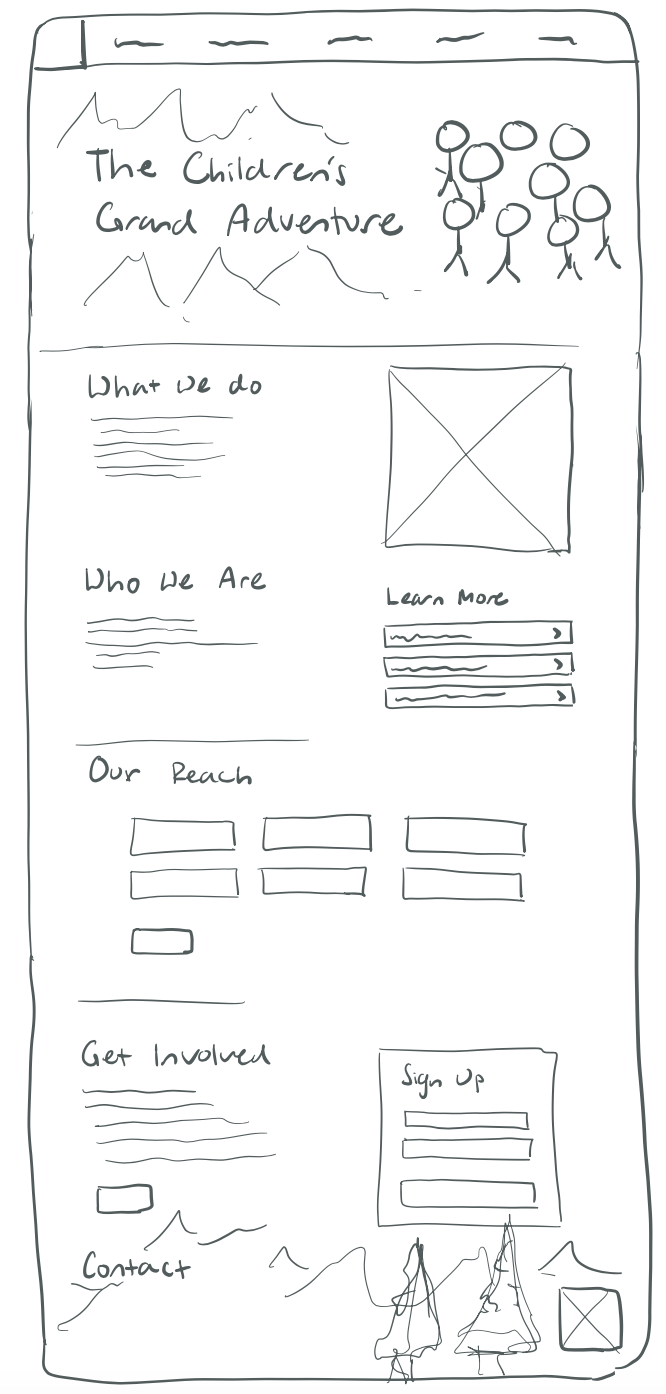 The Children's
Grand Adventure
What we do
Who We Are
Learn More
Our Reach
Get Involved
Sign Up
Contact